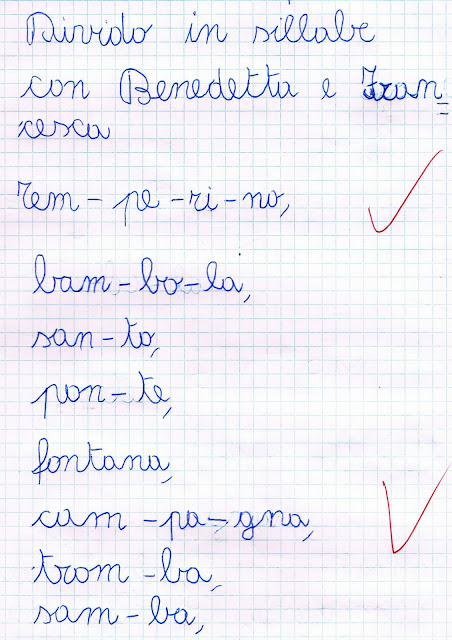 Divido in sillabe
con Benedetta e Fran=
cesca
Tem-pe-ri-no,
bam-bo-la,
san-to,
pon-te,
fontana,
cam-pa-gna,
trom-ba,
sam-ba,